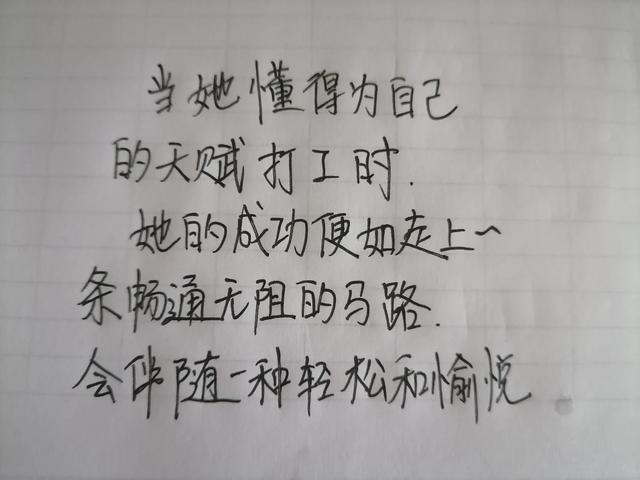 当她懂得为自己
的天赋打工时.
她的成功便如走上一
条畅通无阻的马路.
会伴随一种轻松和愉悦